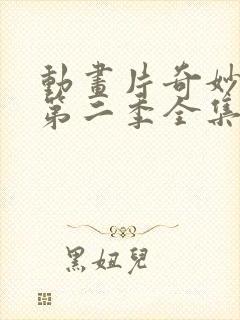 動畫片奇妙
第二季全集
黑妞兒